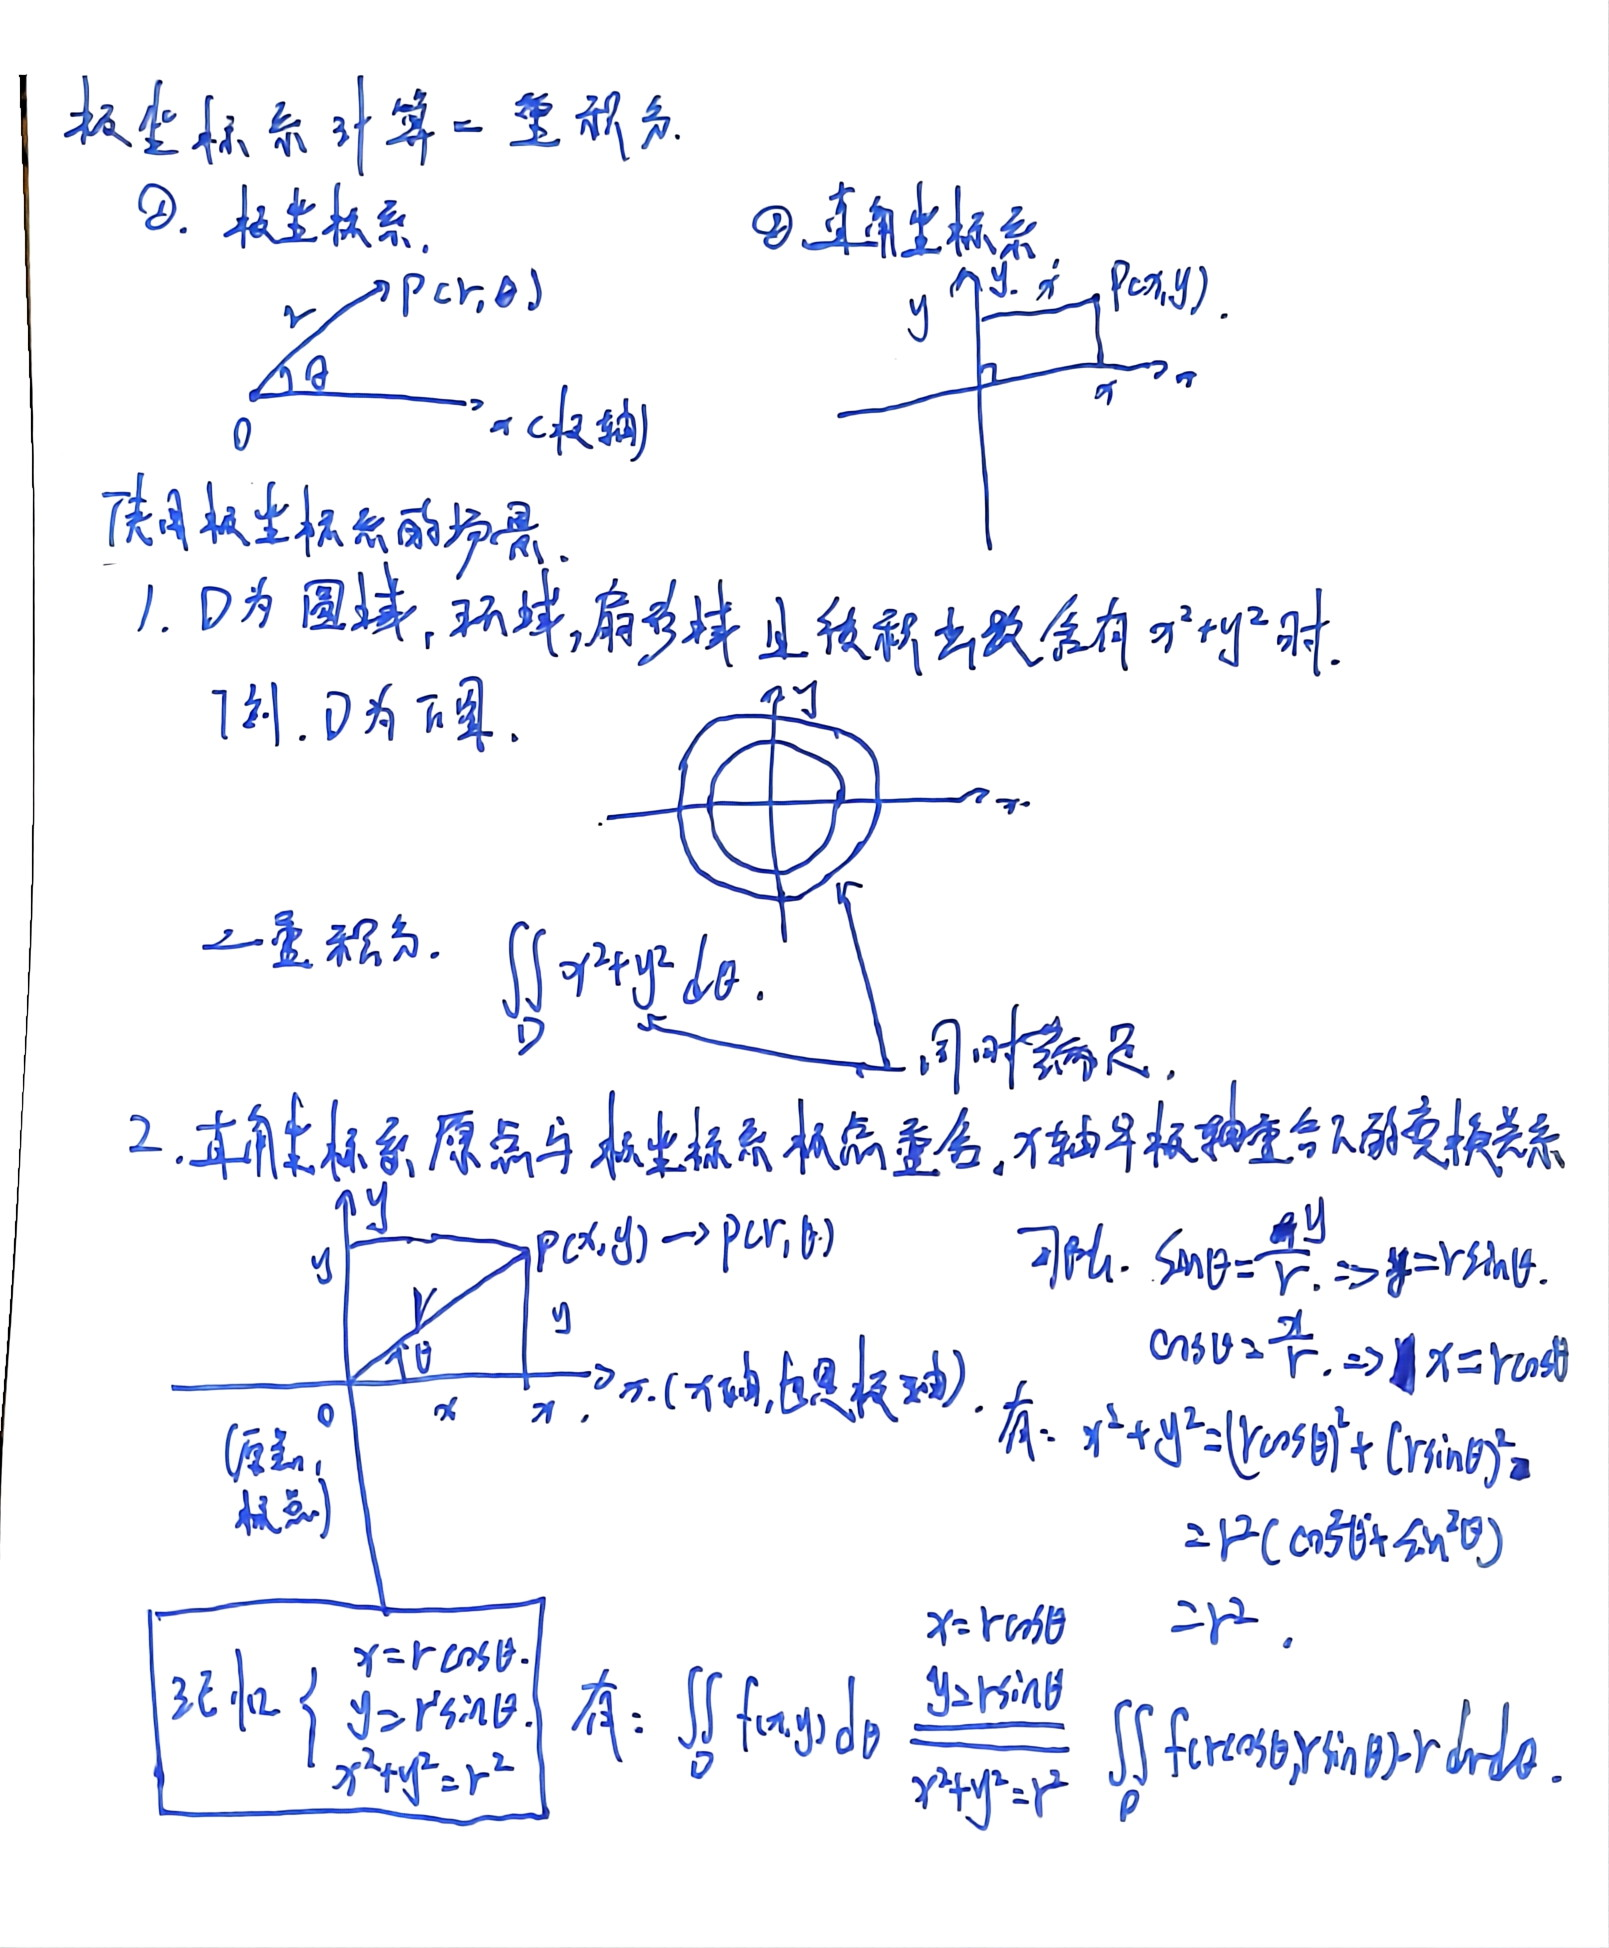 极坐标系计算二重积分.
①. 极坐标系.
②.直角坐标系
r P(r,θ)
θ
O x(极轴)
y y. x P(x,y).
x x
使用极坐标系的场景.
1. D为圆域,环域,扇形域且被积函数含有x²+y²时.
例. D为下图.
y
x.
二重积分. ∬_D x²+y² dθ.
同时满足.
2.直角坐标系原点与极坐标系极点重合,x轴与极轴重合下的变换关系
y
y P(x,y)→P(r,θ)
r θ y
O x x. x.(x轴,也是极轴).
(原点,
极点)
可知. sinθ=y/r.⇒y=rsinθ.
cosθ=x/r.⇒x=rcosθ
有: x²+y²=(rcosθ)²+(rsinθ)²=
=r²(cos²θ+sin²θ)
=r².
记忆{ x=rcosθ.
y=rsinθ.
x²+y²=r²
有: ∬_D f(x,y)dθ
x=rcosθ
y=rsinθ
x²+y²=r²
∬_D f(rcosθ,rsinθ)·rdrdθ.